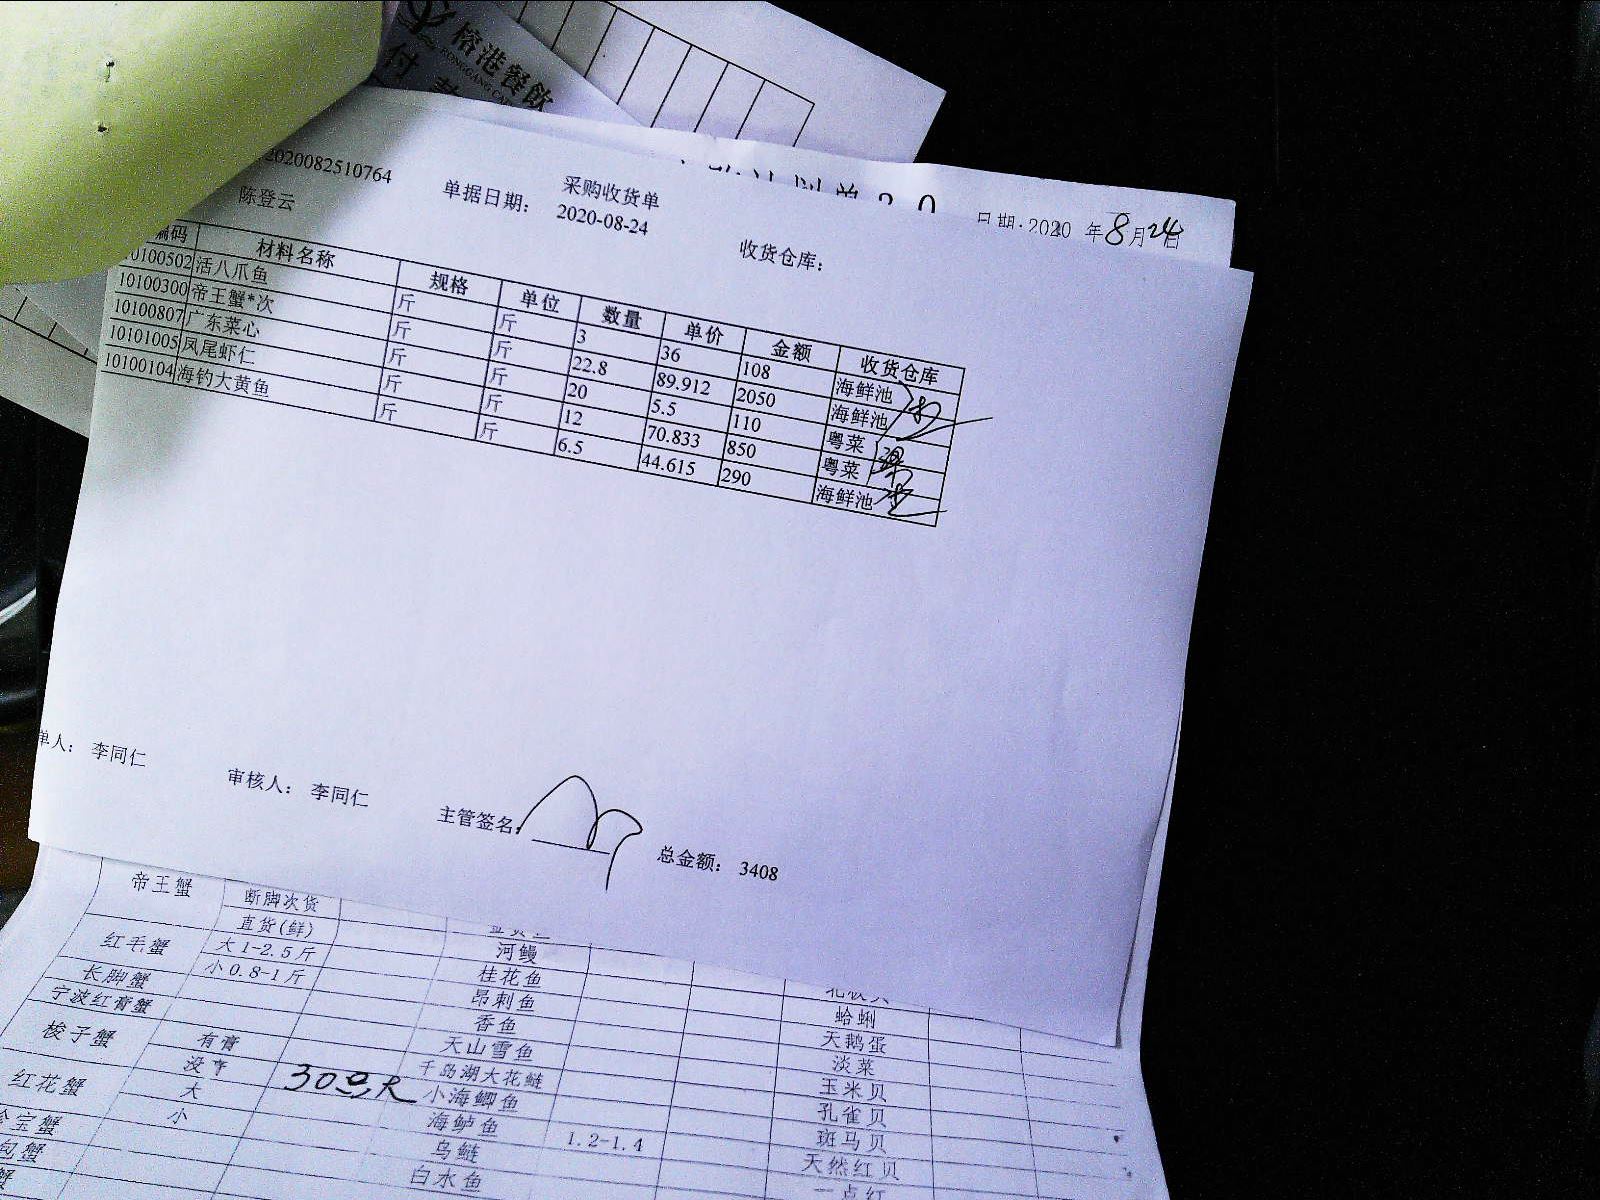 榕港餐飲
付
日期:2020 年8月24日
2020082510764
采购收货单
陈登云
单据日期: 2020-08-24
收货仓库:
编码 材料名称 规格 单位 数量 单价 金额 收货仓库
10100502 活八爪鱼 斤 斤 3 36 108 海鲜池
10100300 帝王蟹*次 斤 斤 22.8 89.912 2050 海鲜池
10100807 广东菜心 斤 斤 20 5.5 110 粤菜
10101005 凤尾虾仁 斤 斤 12 70.833 850 粤菜
10100104 海钓大黄鱼 斤 斤 6.5 44.615 290 海鲜池
单人: 李同仁 审核人: 李同仁 主管签名: 总金额: 3408
帝王蟹 断脚次货
直货(鲜) 河鳗
红毛蟹 大1-2.5斤 桂花鱼
小0.8-1斤 昂刺鱼 蛤蜊
长脚蟹 香鱼 天鹅蛋
宁波红膏蟹 天山雪鱼 淡菜
梭子蟹 有膏 千岛湖大花鲢 玉米贝
没膏 30 小海鲫鱼 孔雀贝
红花蟹 大 海鲈鱼 1.2-1.4 斑马贝
小 乌鲢 天然红贝
宝蟹 白水鱼 一点红
包蟹
蟹